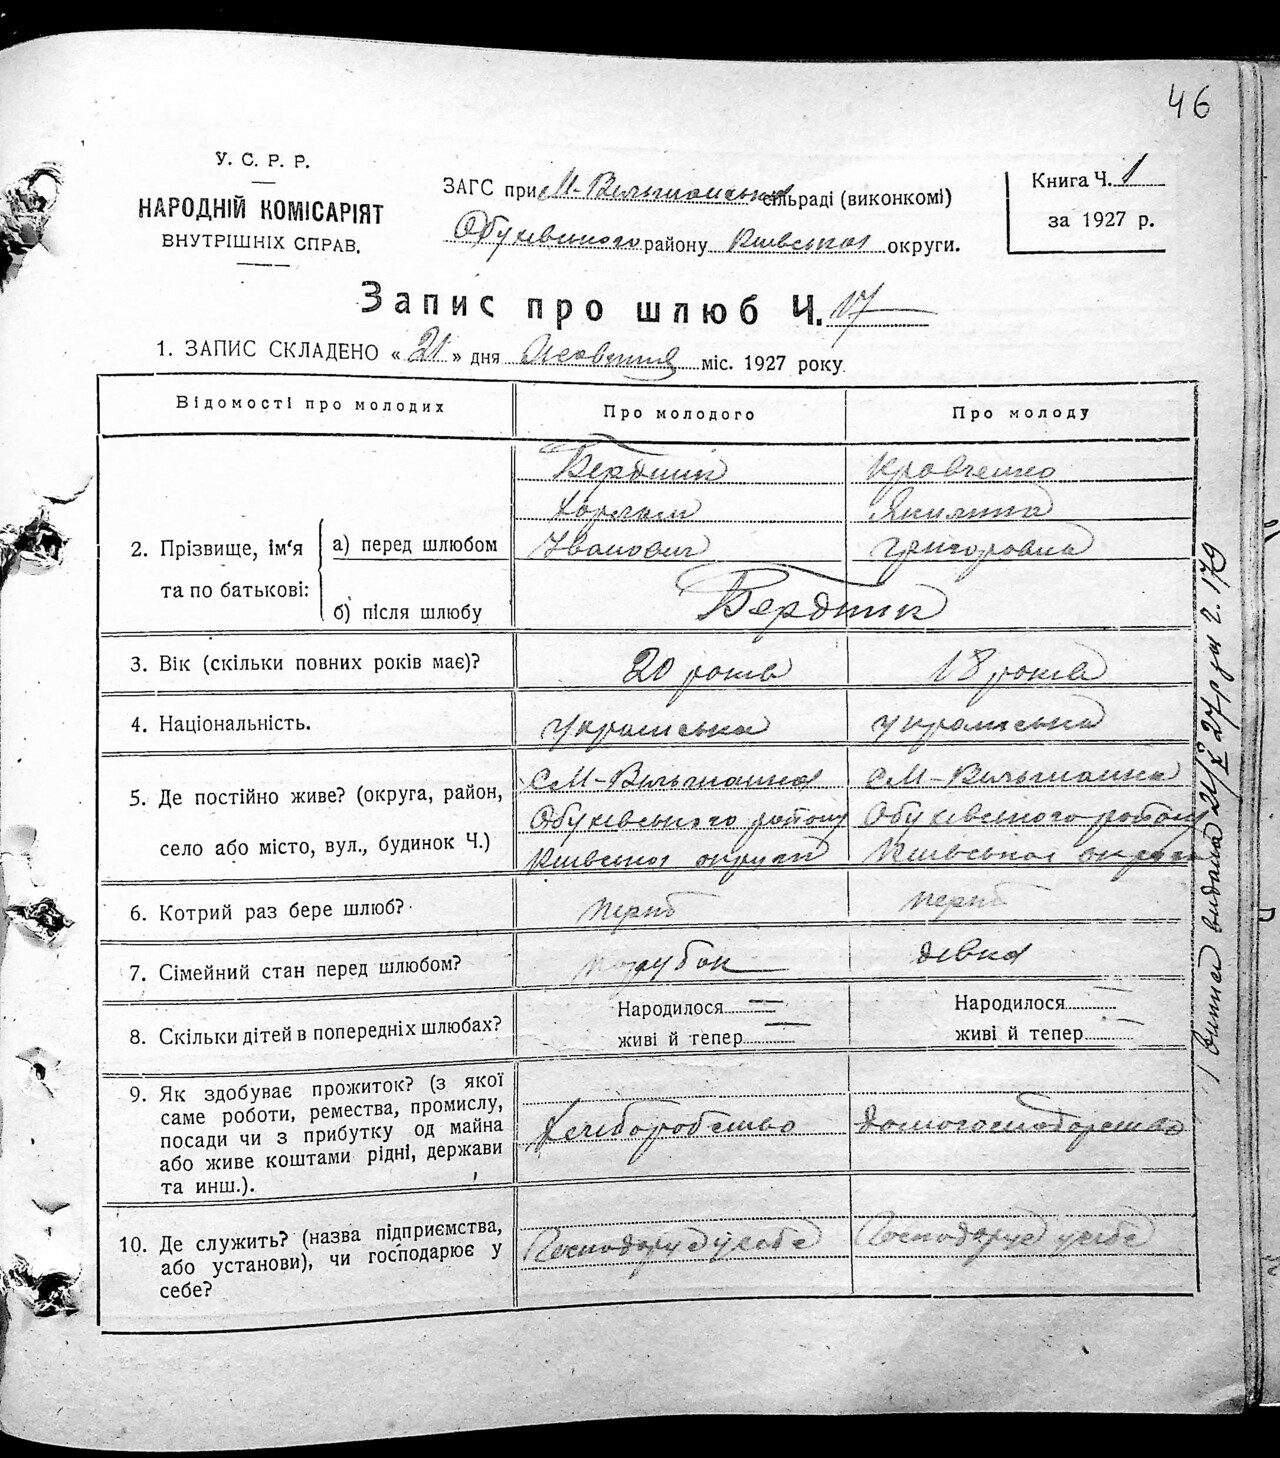 46
У. С. Р. Р.
НАРОДНІЙ КОМІСАРІЯТ
ВНУТРІШНІХ СПРАВ.
ЗАГС при М-Вільшанській сільраді (виконкомі)
Обухівського району Київської округи.
Книга Ч. 1
за 1927 р.
Запис про шлюб Ч. 17
1. ЗАПИС СКЛАДЕНО « 21 » дня Жовтня міс. 1927 року
Відомості про молодих Про молодого Про молоду
Бердник Кравченко
Харлам Якилина
2. Прізвище, ім'я та по батькові: а) перед шлюбом Іванович Григоровна
б) після шлюбу Бердник
3. Вік (скільки повних років має)? 20 років 18 років
4. Національність. українська українська
5. Де постійно живе? (округа, район, с М-Вільшанка с М-Вільшанка
село або місто, вул., будинок Ч.) Обухівського району Обухівського району
Київської округи Київської округи
6. Котрий раз бере шлюб? перш перш
7. Сімейний стан перед шлюбом? парубок дівка
8. Скільки дітей в попередніх шлюбах? Народилося — Народилося —
живі й тепер — живі й тепер —
9. Як здобуває прожиток? (з якої
саме роботи, ремества, промислу,
посади чи з прибутку од майна
або живе коштами рідні, держави
та инш.). Хліборобство домогосподарство
10. Де служить? (назва підприємства,
або установи), чи господарює у
себе? Господарує у себе Господарує у себе
Витяг видана 21/X 27 р за № 179